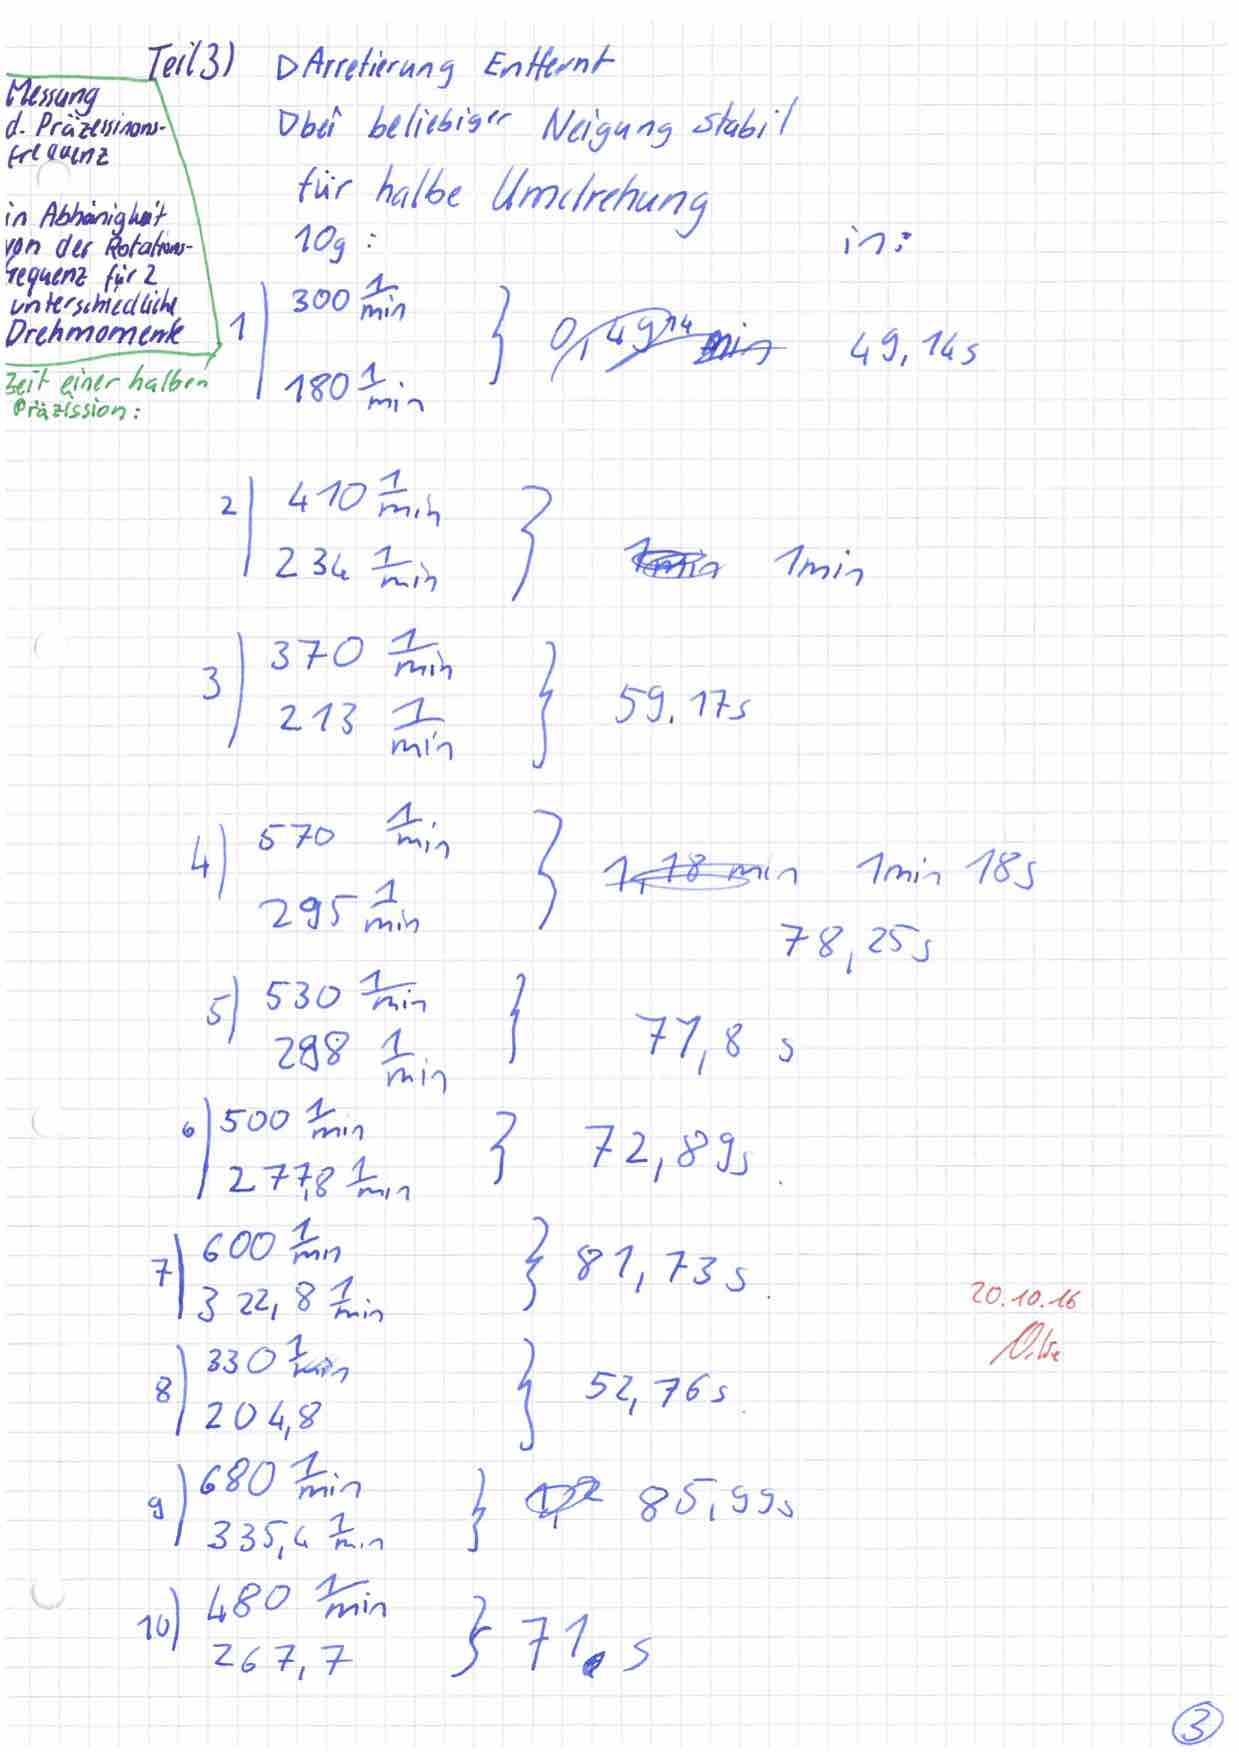 Teil 3) ▷ Arretierung Entfernt
▷ bei beliebiger Neigung stabil
für halbe Umdrehung
10g : in:
Messung
d. Präzessinons-
frequenz
in Abhänigkeit
von der Rotations-
frequenz für 2
unterschiedliche
Drehmomente
Zeit einer halben
Präzission:
1) 300 1/min
180 1/min } 0,4914 min 49,14s
2) 410 1/min
234 1/min } 1min 1min
3) 370 1/min
213 1/min } 59.17s
4) 570 1/min
295 1/min } 1,18 min 1min 18s
78,25s
5) 530 1/min
298 1/min } 77,8 s
6) 500 1/min
277,8 1/min } 72,89s
7) 600 1/min
322,8 1/min } 81,73s
20.10.16
8) 330 1/min
204,8 } 52,76s
9) 680 1/min
335,4 1/min } 85,99s
10) 480 1/min
267,7 } 71. s
3